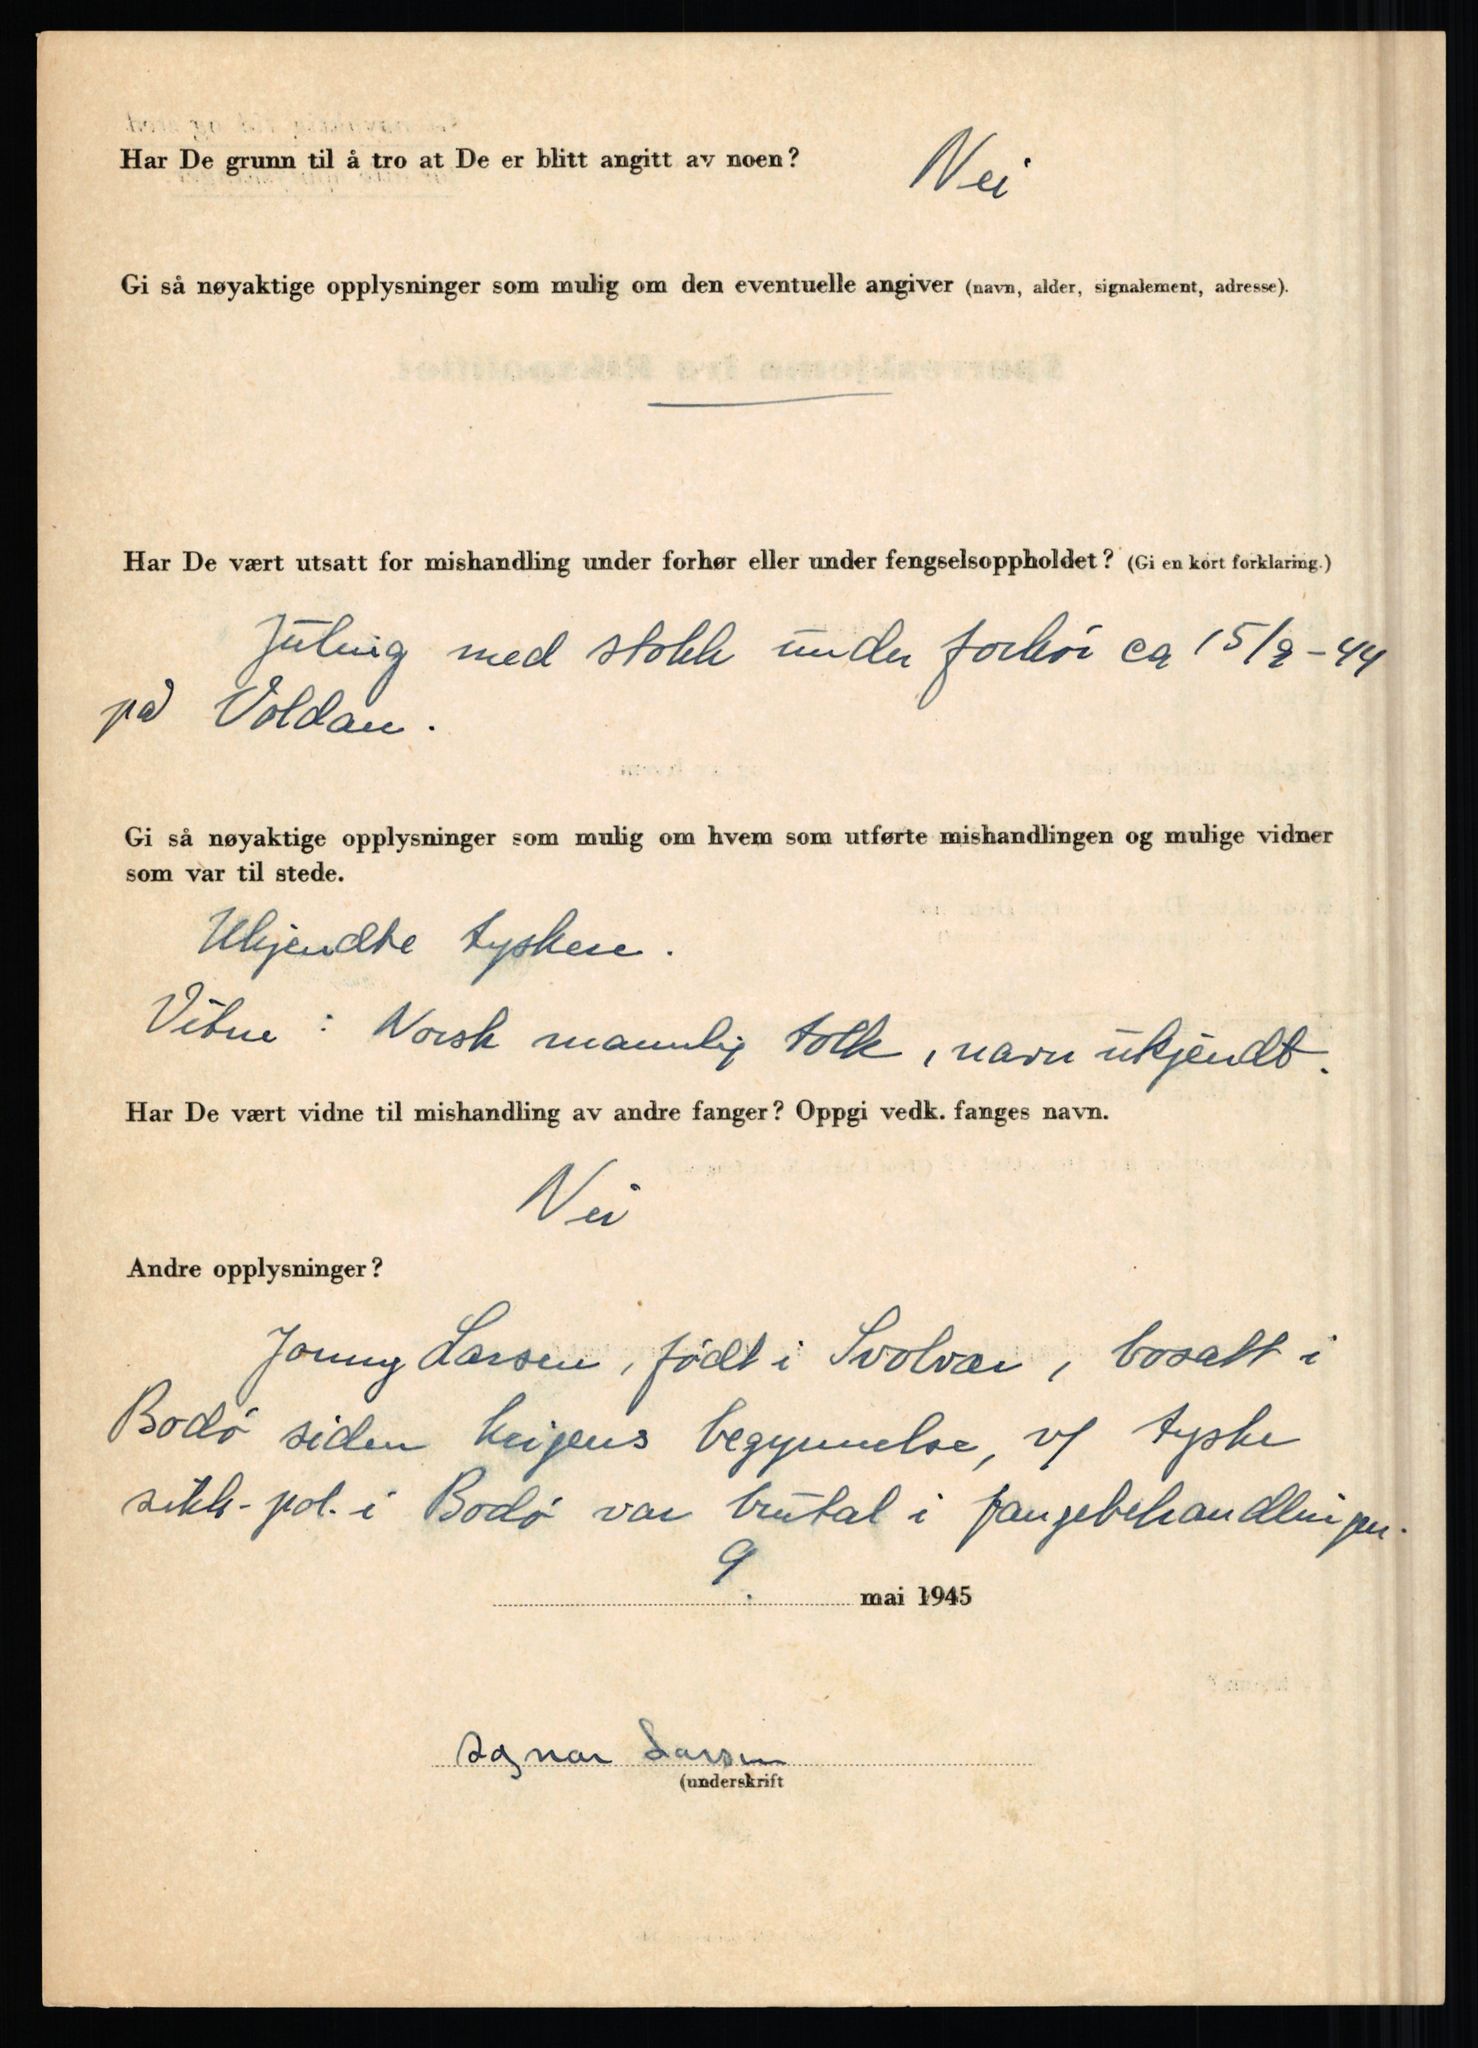 Har De grunn til å tro at De er blitt angitt av noen?
Nei
Gi så nøyaktige opplysninger som mulig om den eventuelle angiver (navn, alder, signalement, adresse).
Har De vært utsatt for mishandling under forhør eller under fengselsoppholdet? (Gi en kort forklaring.)
Juling med stokk under forhör ca 15/9-44
på Voldan.
Gi så nøyaktige opplysninger som mulig om hvem som utførte mishandlingen og mulige vidner
som var til stede.
Ukjendte tyskere.
Vitne: Norsk mannlig tolk, navn ukjendt.
Har De vært vidne til mishandling av andre fanger? Oppgi vedk. fanges navn.
Nei
Andre opplysninger?
Jonny Larsen, födt i Svolvær, bosatt i
Bodö siden krigens begynnelse, v/ tyske
sikk-pol. i Bodö var brutal i fangebehandlingen.
9. mai 1945
Ragnar Larsen
(underskrift